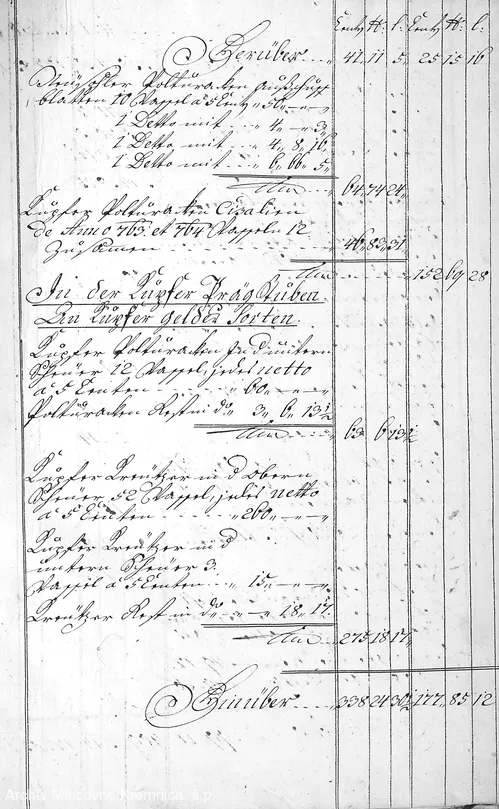 Centr ℔. l. Centr ℔. l.
Herüber . . . „ 41„ 11 5„ 25 15 16
Polturacken
blatten 10 Wappel â 5 Centr „ 50„ — „ — „
1 Detto mit . . „ 4„ — „ 3„
1 Detto mit . . „ 4„ 8„ 16„
1 Detto mit . . „ 6„ 66„ 5„
64„ 74 24„
Kupfer Polturacken Cisalien
de Anno 763 et 764 Wappeln 12
Zusamen . . . „ 46„ 83„ 31
152 69 28
In der Kupfer Präg Stuben
An Kupfer Gelder Sorten
Kupfer Polturacken in d untern
Scheuer 12 Wappel, jedes netto
â 5 Centen . . . „ 60„ — „ — „
Polturacken Rest in do „ 3„ 6„ 13½
63„ 6 13½
Kupfer Kreutzer in d obern
Scheuer 52 Wappel, jedes netto
â 5 Centen . . . „ 260„ — „ — „
Kupfer Kreutzer in d
untern Scheuer 3
Wappel â 5 Centen . . „ 15„ — „ — „
Kreutzer Rest in do „ — „ 18„ 17„
275 18 17„
Hinüber . . . „ 338 24 30½ 177„ 85 12
Archív Mincovne Kremnica, š.p.